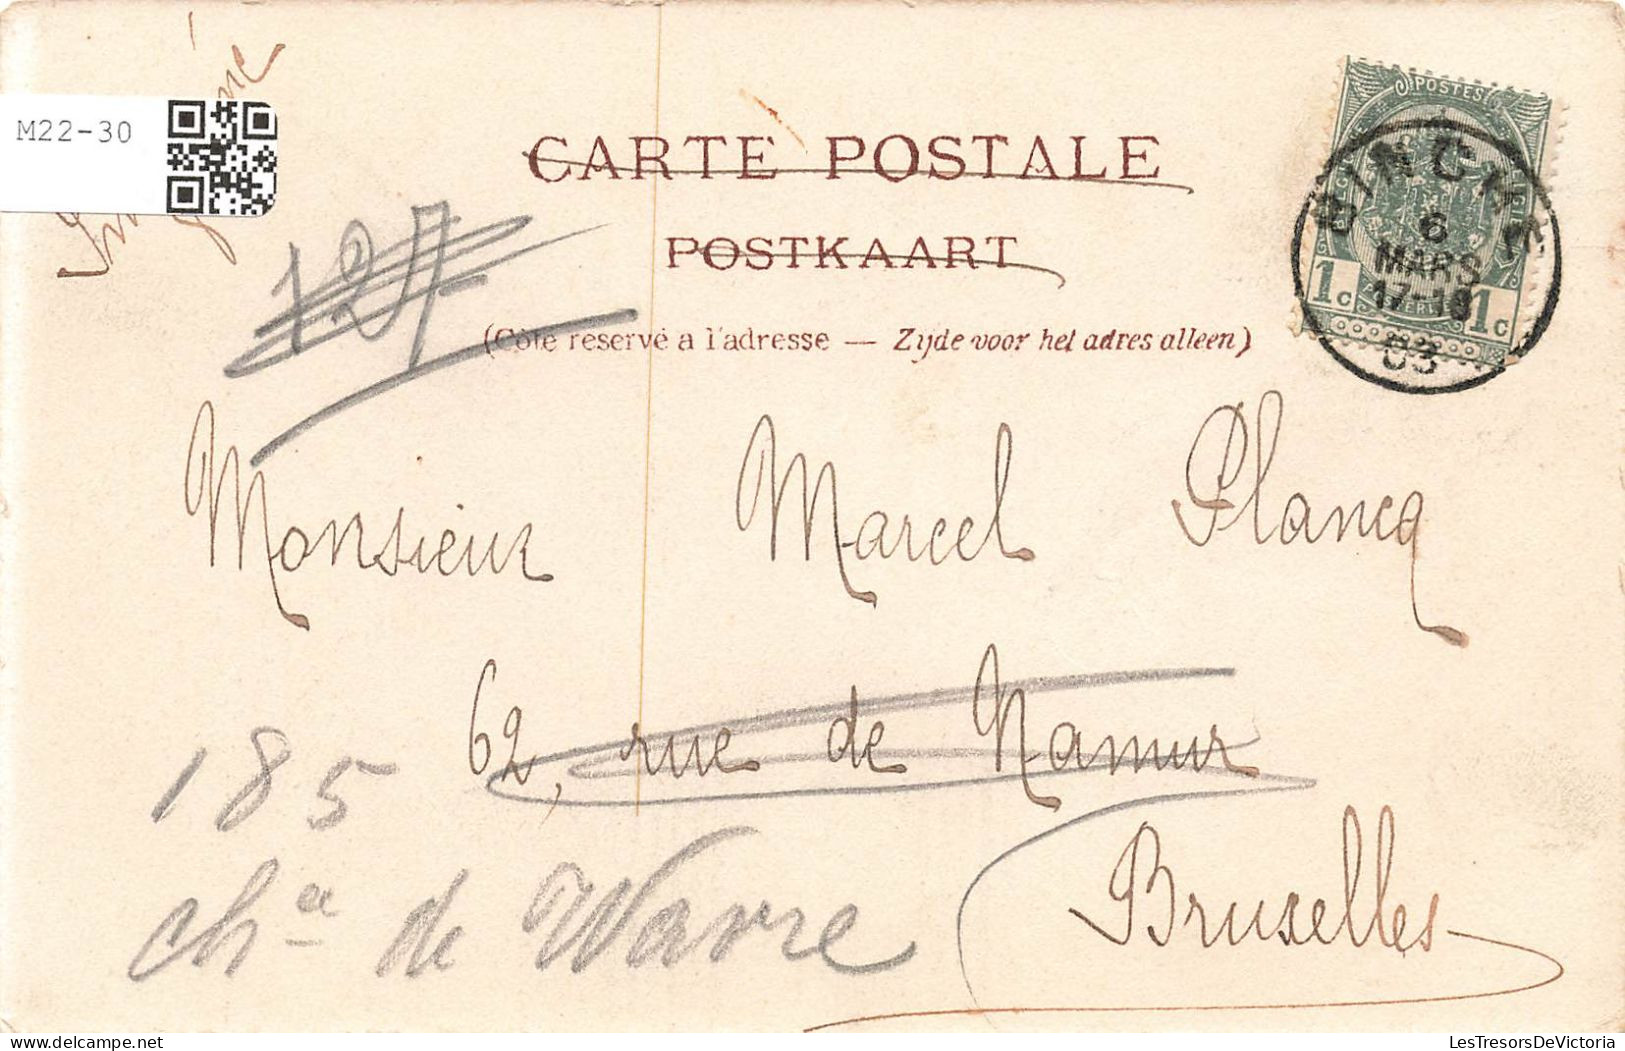 M22-30
Imprimé
CARTE POSTALE
POSTKAART
(Côté réservé a l'adresse — Zyde voor het adres alleen)
POSTES
1c 1c
BINCHE
6
MARS
17-18
03
127
Monsieur Marcel Plancq
62, rue de Namur
185
chée de Wavre
Bruxelles
LesTresorsDeVictoria
www.delcampe.net